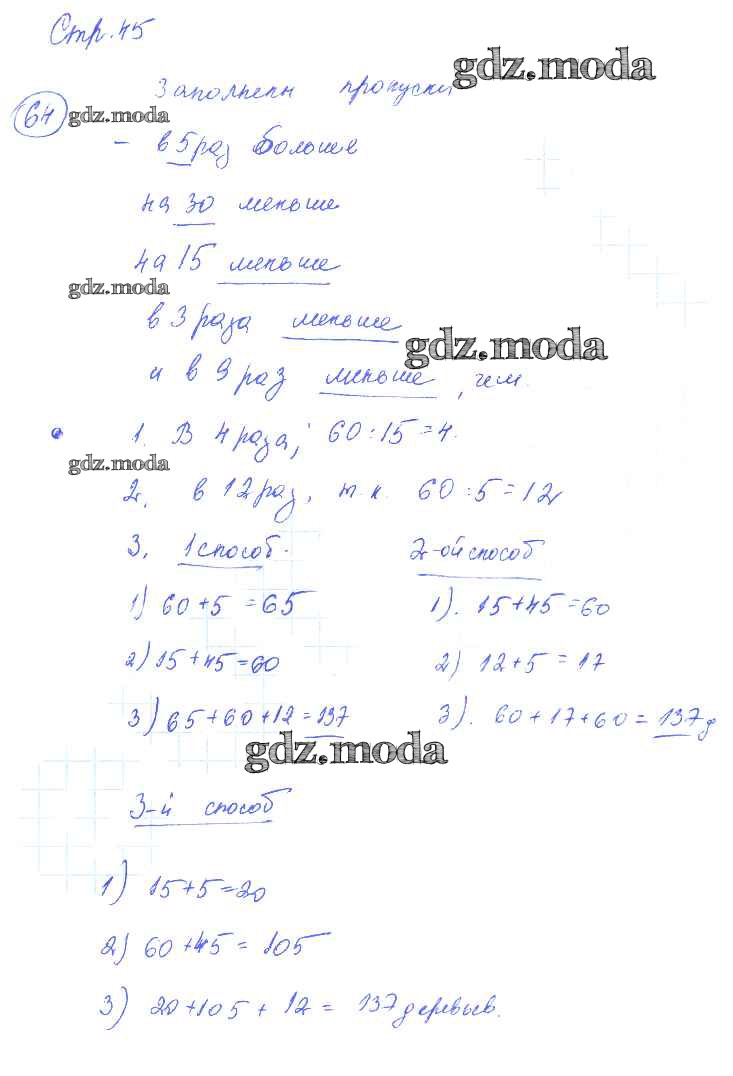 Стр. 45
gdz.moda
Заполнены пропуски
64 gdz.moda
– в 5 раз больше
на 30 меньше
на 15 меньше
gdz.moda
в 3 раза меньше
gdz.moda
и в 9 раз меньше, чем.
1. В 4 раза; 60:15=4.
gdz.moda
2. в 12 раз, т.к. 60:5=12
3. 1 способ. 2-ой способ
1) 60+5=65 1). 15+45=60
2) 15+45=60 2) 12+5=17
3) 65+60+12=137 3). 60+17+60=137 д
gdz.moda
3-й способ
1) 15+5=20
2) 60+45=105
3) 20+105+12=137 деревьев.